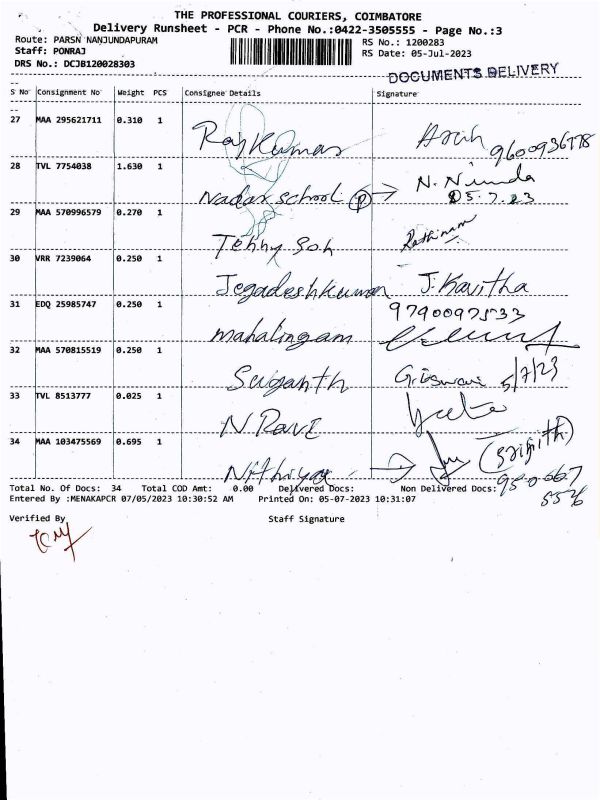 THE PROFESSIONAL COURIERS, COIMBATORE
Delivery Runsheet - PCR - Phone No.:0422-3505555 - Page No.:3
Route: PARSN NANJUNDAPURAM
RS No.: 1200283
Staff: PONRAJ
RS Date: 05-Jul-2023
DRS No.: DCJB120028303
DOCUMENTS DELIVERY
S No Consignment No Weight PCS Consignee Details Signature
27 MAA 295621711 0.310 1 Rajkumar 9600936778
28 TVL 7754038 1.630 1 Nadar school P → N.
05.7.23
29 MAA 570996579 0.270 1 Rathinam
30 VRR 7239064 0.250 1 Jegadeshkumar J. Kavitha
9790097533
31 EDQ 25985747 0.250 1 mahalingam
32 MAA 570815519 0.250 1 Suganth 5/7/23
33 TVL 8513777 0.025 1 N Ravi
34 MAA 103475569 0.695 1 Nithiya →
Total No. Of Docs: 34 Total COD Amt: 0.00 Delivered Docs: Non Delivered Docs:
Entered By :MENAKAPCR 07/05/2023 10:30:52 AM Printed On: 05-07-2023 10:31:07
Verified By Staff Signature